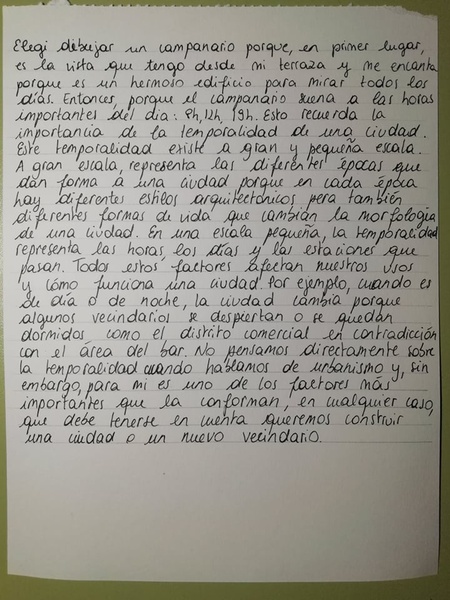 Elegi dibujar un campanario porque, en primer lugar,
es la vista que tengo desde mi terraza y me encanta
porque es un hermoso edificio para mirar todos los
días. Entonces, porque el campanario suena a las horas
importantes del día: 9h, 12h, 19h. Esto recuerda la
importancia de la temporalidad de una ciudad.
Este temporalidad existe a gran y pequeña escala.
A gran escala, representa las diferentes épocas que
dan forma a una ciudad porque en cada época
hay diferentes estilos arquitectónicos pero también
diferentes formas de vida que cambian la morfología
de una ciudad. En una escala pequeña, la temporalidad
representa las horas, los días y las estaciones que
pasan. Todos estos factores afectan nuestros usos
y cómo funciona una ciudad. Por ejemplo, cuando es
de día o de noche, la ciudad cambia porque
algunos vecindarios se despiertan o se quedan
dormidos, como el distrito comercial en contradicción
con el área del bar. No pensamos directamente sobre
la temporalidad cuando hablamos de urbanismo y, sin
embargo, para mi es uno de los factores más
importantes que la conforman, en cualquier caso,
que debe tenerse en cuenta queremos construir
una ciudad o un nuevo vecindario.